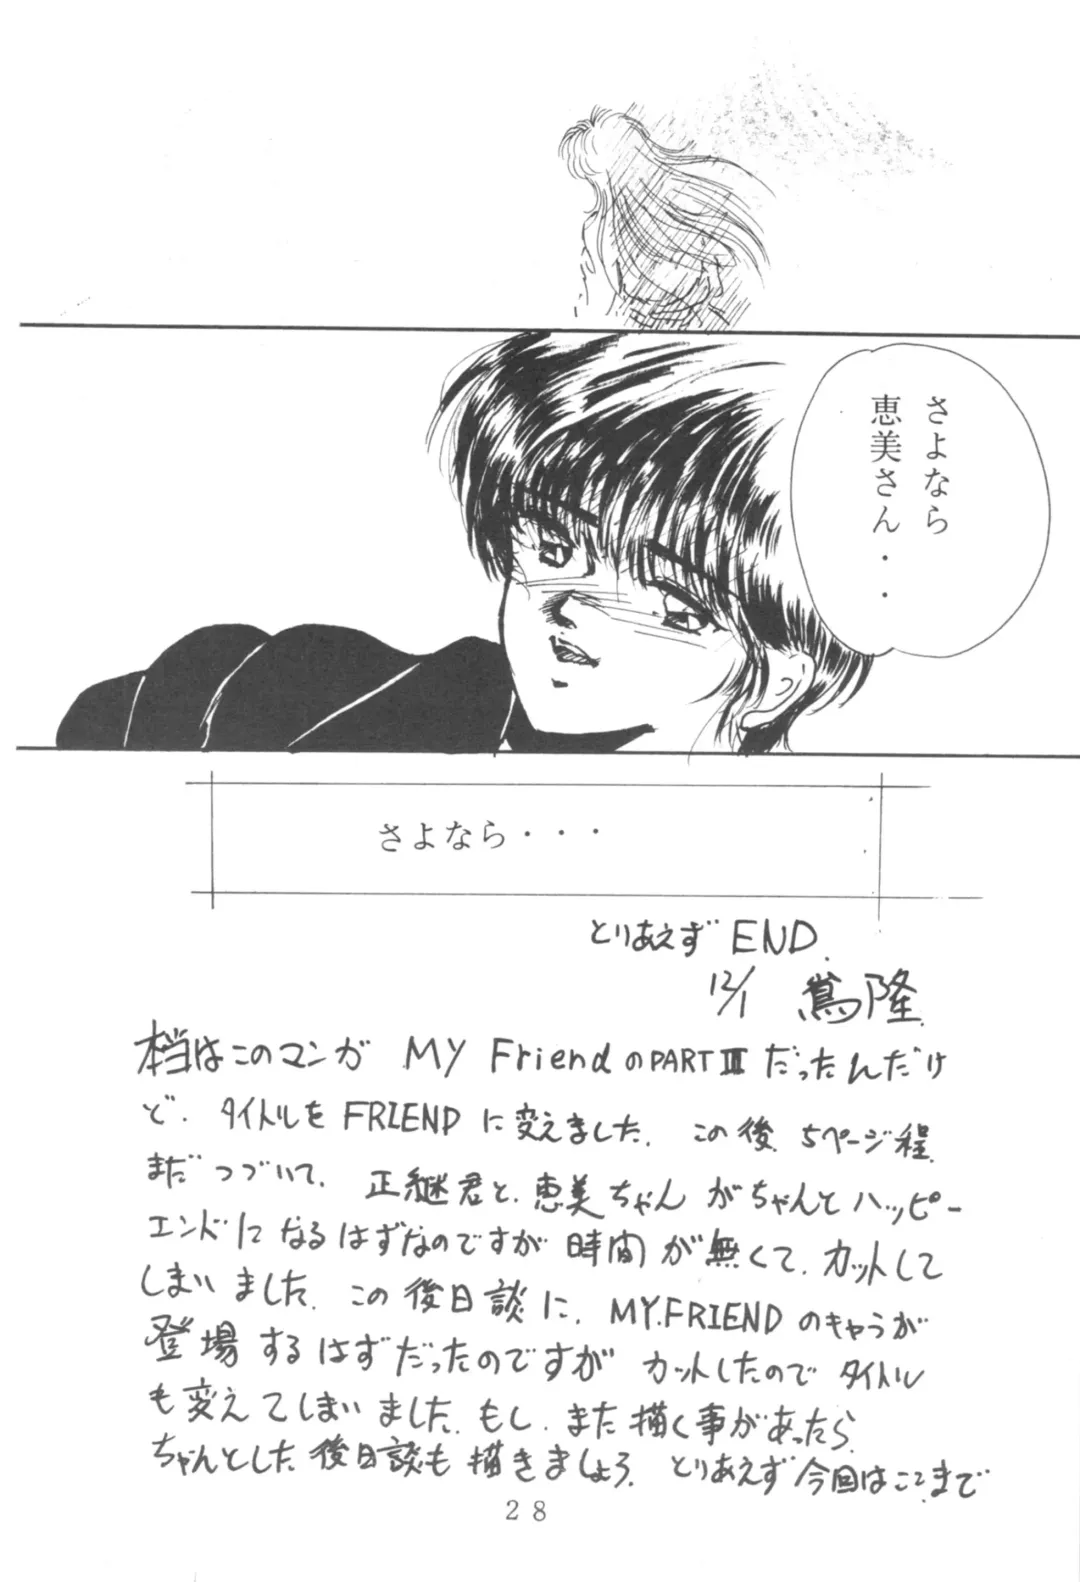 さよなら
恵美さん・・
さよなら・・・
とりあえずEND.
12/1 蔦隆
本当はこのマンガ MY FriendのPARTⅢだったんだけ
ど、タイトルをFRIENDに変えました。この後、5ページ程
まだつづいて、正継君と、恵美ちゃんがちゃんとハッピー
エンドになるはずなのですが時間が無くて、カットして
しまいました。この後日談に、MY.FRIENDのキャラが
登場するはずだったのですがカットしたのでタイトル
も変えてしまいました。もし、また描く事があったら
ちゃんとした後日談も描きましょう。とりあえず今回はここまで
28